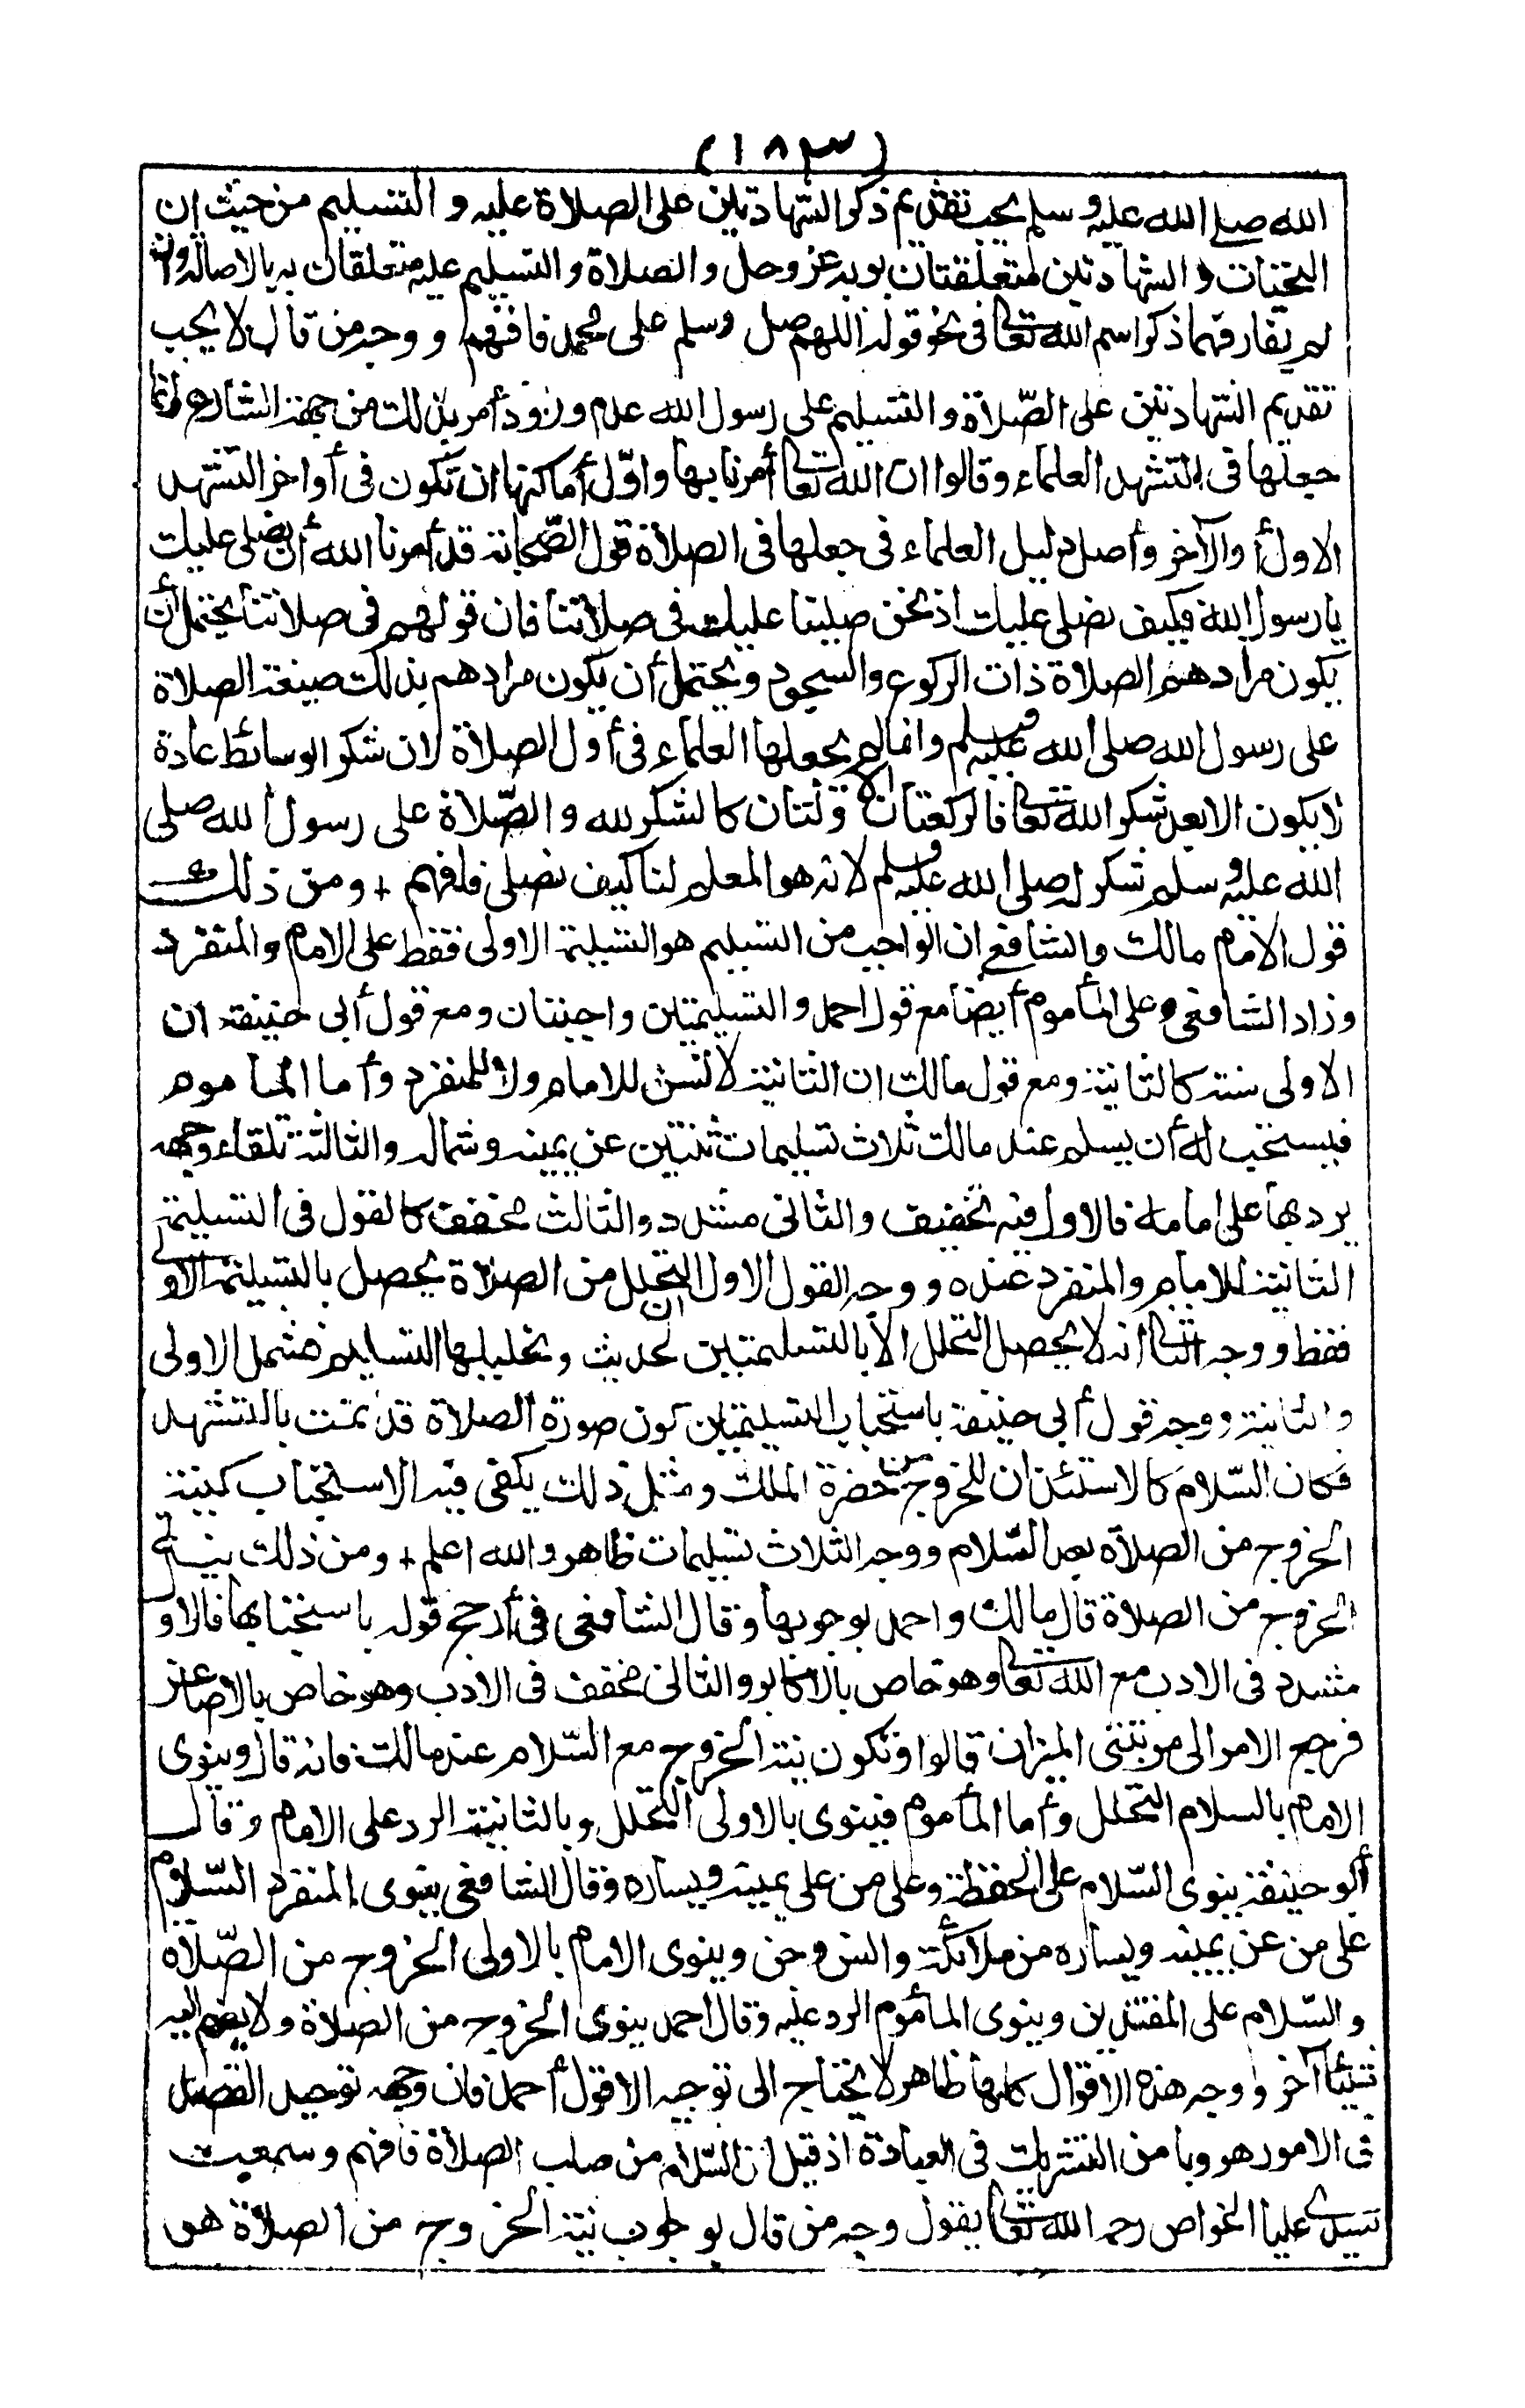 (١٨٣)
الله صلى الله عليه وسلم يجب تقديم ذكر الشهادتين على الصلاة عليه والتسليم من حيث ان
التحيات والشهادتين متعلقتان بربه عز وجل والصلاة والتسليم عليه متعلقان به بالاصالة وان
لم يفارقهما ذكر اسم الله تعالى فى نحو قوله اللهم صل وسلم على محمد فافهم ووجه من قال لا يجب
تقديم الشهادتين على الصّلاة والتسليم على رسول الله عدم ورود أمر بذلك من جهة الشارع وانما
جعلها فى التشهد العلماء وقالوا ان الله تعالى أمرنا بها واوّل أماكنها ان تكون فى أواخر التشهد
الاول أو الآخر وأصل دليل العلماء فى جعلها فى الصلاة قول الصّحابة قد أمرنا الله أن نصلى عليك
يا رسول الله فكيف نصلى عليك اذ نحن صلينا عليك فى صلاتنا فان قولهم فى صلاتنا يحتمل أن
يكون مرادهم الصلاة ذات الركوع والسجود ويحتمل أن يكون مرادهم بذلك صيغة الصلاة
على رسول الله صلى الله عليه وسلم وانما لم يجعلها العلماء فى أول الصلاة لان شكر الوسائط عادة
لا يكون الا بعد شكر الله تعالى فالركعتان الاولتان كالشكر لله والصّلاة على رسول الله صلى
الله عليه وسلم شكر له صلى الله عليه وسلم لانه هو المعلم لنا كيف نصلى فافهم + ومن ذلك
قول الامام مالك والشافعى ان الواجب من التسليم هو التسليمة الاولى فقط على الامام والمنفرد
وزاد الشافعى وعلى المأموم أيضا مع قول احمد والتسليمتين واجبتان ومع قول أبى حنيفة ان
الاولى سنة كالثانية ومع قول مالك ان الثانية لا تسن للامام ولا للمنفرد وأما المأموم
فيستحب له أن يسلم عند مالك ثلاث تسليمات ثنتين عن يمينه وشماله والثالثة تلقاء وجهه
يرد بها على امامه فالاول فيه تخفيف والثانى مشدد والثالث مخفف كالقول فى التسليمة
الثانية للامام والمنفرد عنده ووجه القول الاول ان التحلل من الصلاة يحصل بالتسليمة الاولى
فقط ووجه الثانى انه لا يحصل التحلل الا بالتسليمتين لحديث وتحليلها التسليم فشمل الاولى
والثانية ووجه قول أبى حنيفة باستحباب التسليمتين كون صورة الصلاة قد تمت بالتشهد
فكان السّلام كالاستئذان للخروج من حضرة الملك ومثل ذلك يكفى فيه الاستحباب كنية
الخروج من الصلاة بعد السّلام ووجه الثلاث تسليمات ظاهر والله اعلم + ومن ذلك نية
الخروج من الصلاة قال مالك واحمد بوجوبها وقال الشافعى فى أرجح قوله باستحبابها فالاول
مشدد فى الادب مع الله تعالى وهو خاص بالاكابر والثانى مخفف فى الادب وهو خاص بالاصاغر
فرجع الامر الى مرتبتى الميزان قالوا وتكون نية الخروج مع السّلام عند مالك فانه قال وينوى
الامام بالسلام التحلل وأما المأموم فينوى بالاولى التحلل وبالثانية الرد على الامام وقال
أبو حنيفة ينوى السّلام على الحفظة وعلى من على يمينه ويساره وقال الشافعى ينوى المنفرد السّلام
على من عن يمينه ويساره من ملائكة وانس وجن وينوى الامام بالاولى الخروج من الصّلاة
والسّلام على المقتدين وينوى المأموم الرد عليه وقال احمد ينوى الخروج من الصلاة ولا يضم اليه
شيئا آخر ووجه هذه الاقوال كلها ظاهر لا يحتاج الى توجيه الا قول أحمد فان وجهه توحيد القصد
فى الامور هروبا من التشريك فى العبادة اذ قيل ان السّلام من صلب الصلاة فافهم وسمعت
سيدى عليا الخواص رحمه الله تعالى يقول وجه من قال بوجوب نية الخروج من الصلاة هى